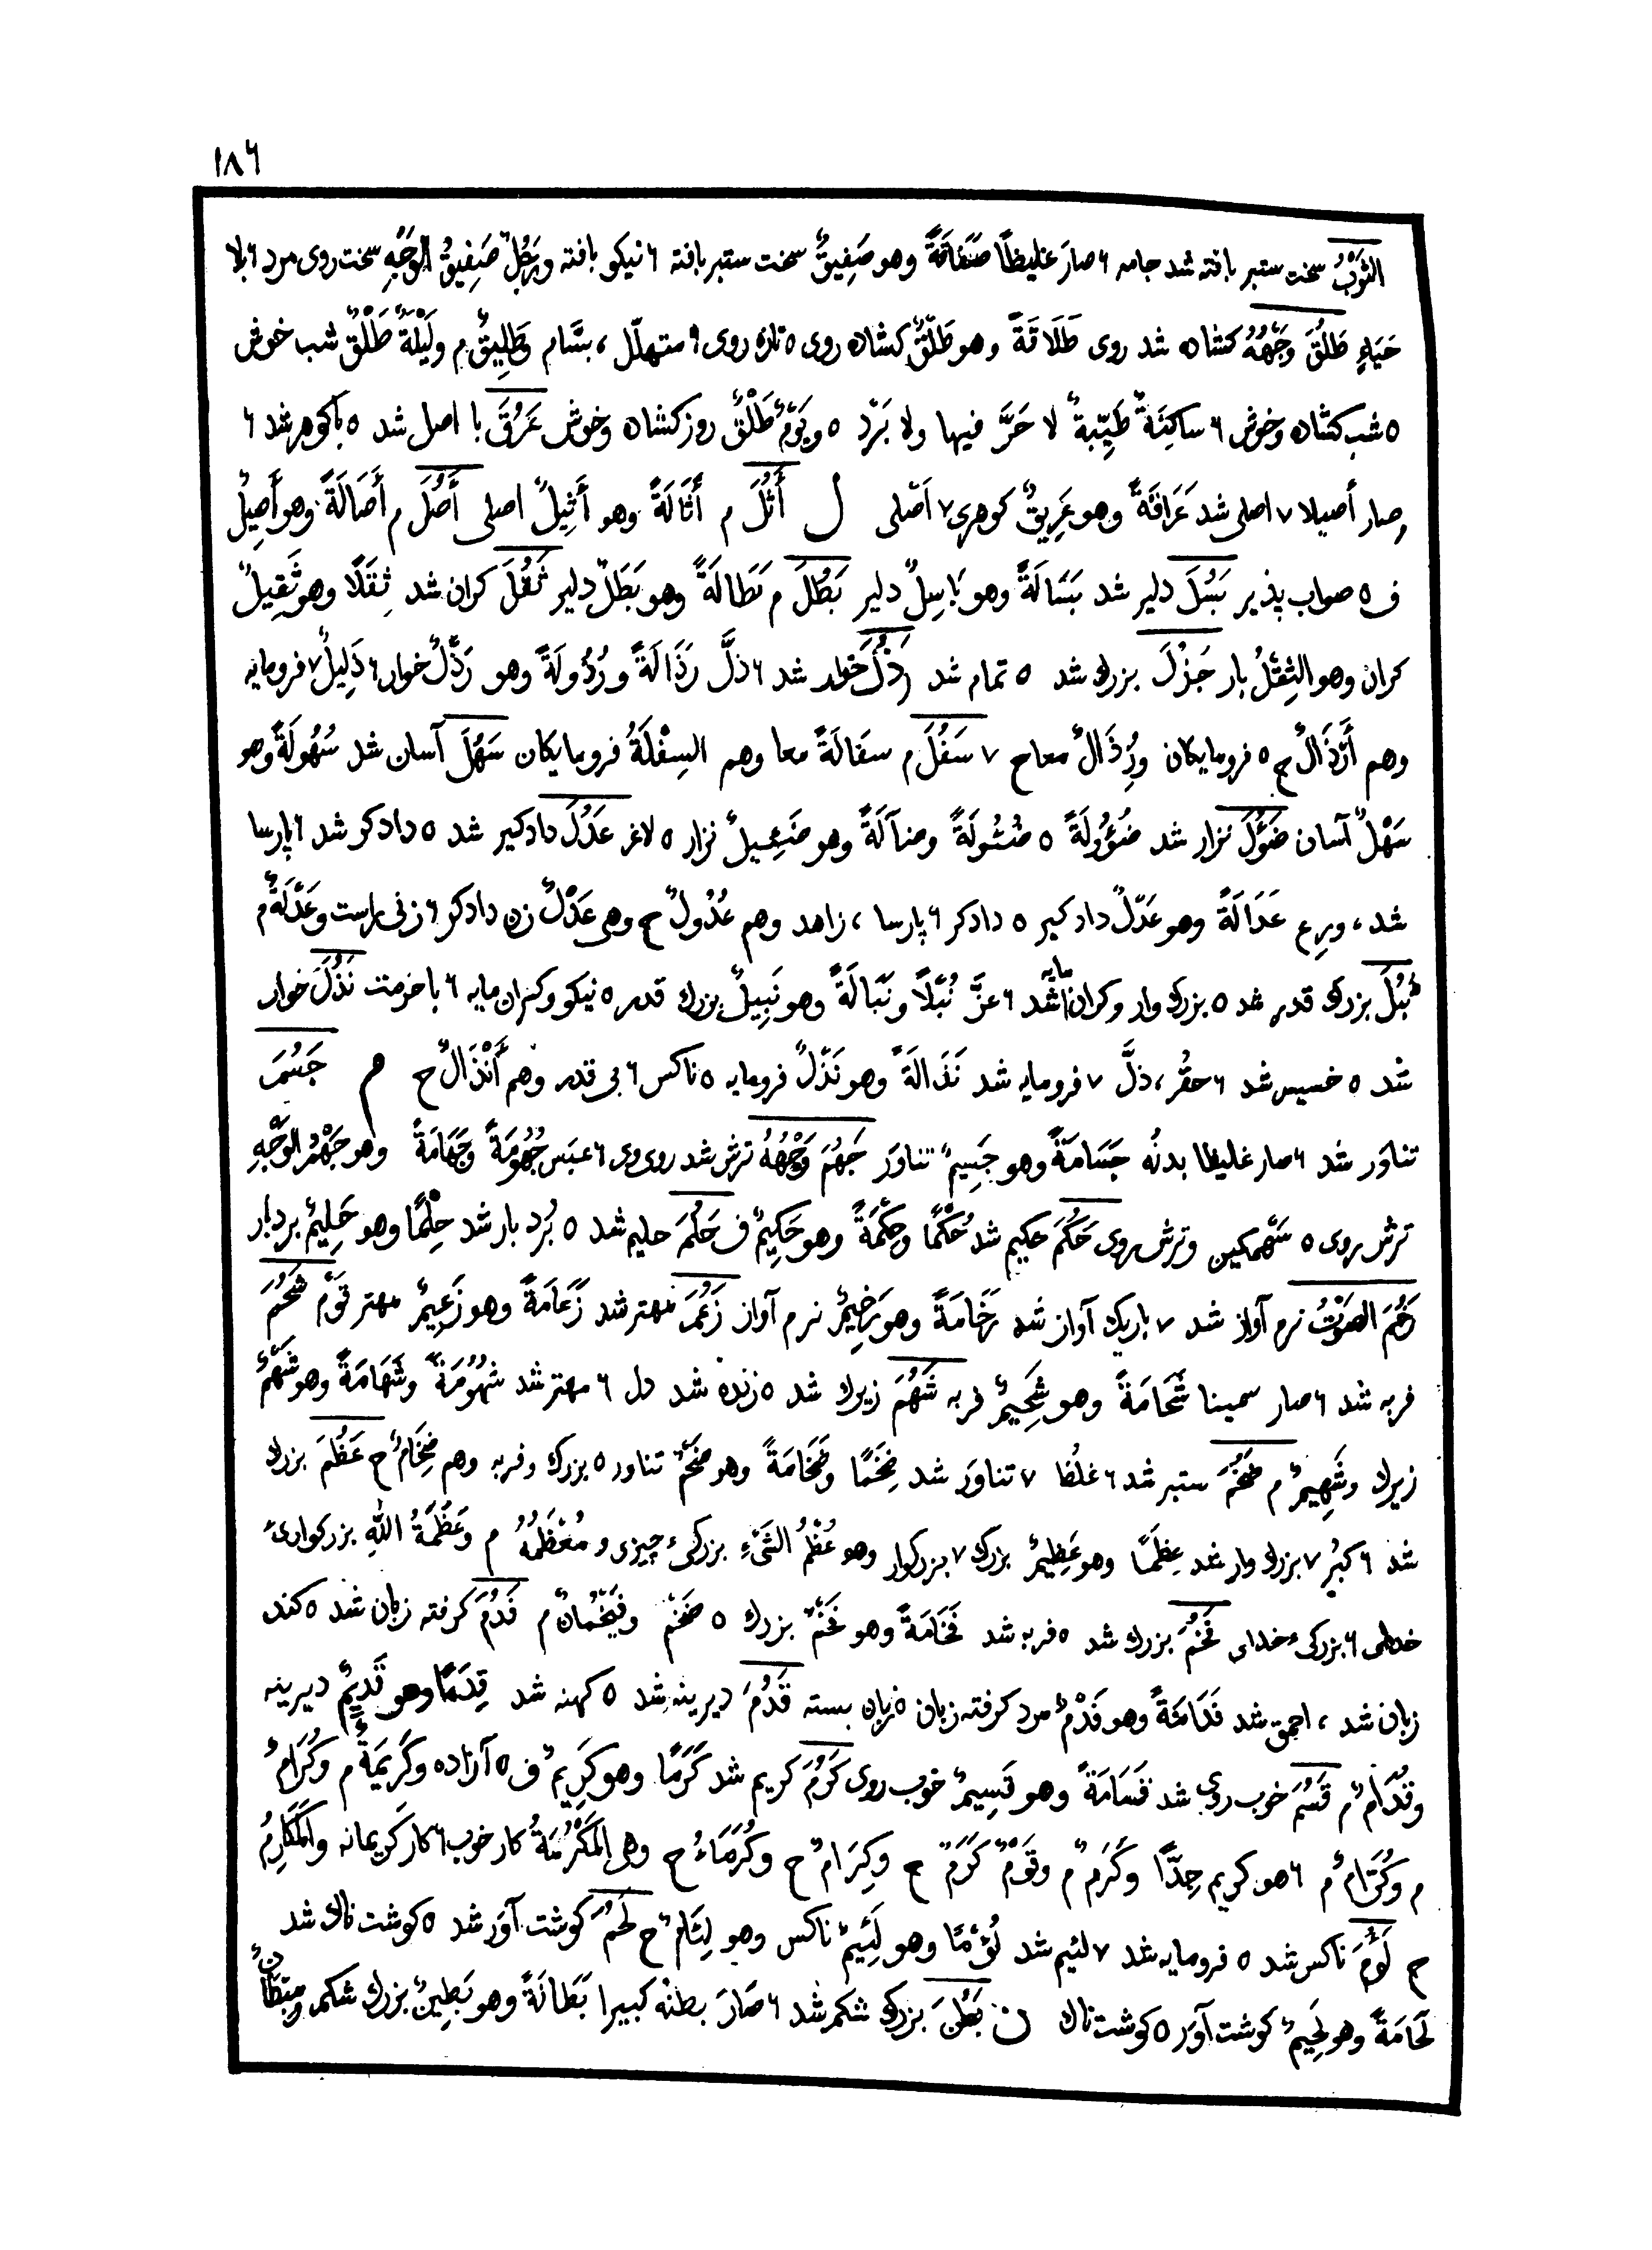 ۱۸۶
الثَوْبُ سخت ستبر بافته شد جامه ۶ صارَ غليظًا صَفَاقَةً وهو صَفِيقٌ سخت ستبر بافته ۶ نیکو بافته ورَجُلٌ صَفِيقُ الوَجْهِ سخت روی مرد ۶ بلا
حَيَاءٍ طَلُقَ وَجْهُهُ کشاده شد روی طَلَاقَةً وهو طَلْقٌ کشاده روی ۵ تازه روی ۶ متهلّل ، بسّام وطَلِيقٌ م ولَيْلَةٌ طَلْقٌ شب خوش
۵ شب کشاده وخوش ۶ ساكِنَةٌ طَيِّبةٌ لا حَرَّ فيها ولا بَرْد ۵ ويَوْمٌ طَلْقٌ روز کشاده وخوش عَرُقَ با اصل شد ۵ باکوهر شد ۶
صار أصيلا ۷ اصلی شد عَرَاقَةً وهو عَرِيقٌ کوهری ۷ اَصْلی ل أَثُلَ م أَثَالَةً وهو أَثِيلٌ اصلی أَصُلَ م أَصَالَةً وهو أَصِيلٌ
ف ۵ صواب پذیر بَسُلَ دلیر شد بَسَالَةً وهو بَاسِلٌ دلیر بَطُلَ م بَطَالَةً وهو بَطَلٌ دلیر ثَقُلَ کران شد ثِقَلًا وهو ثَقِيلٌ
کران وهو الثِقْلُ بار جَزُلَ بزرك شد ۵ تمام شد رَذُلَ خوار شد ۶ ذلَّ رَذَالَةً ورُذُولَةً وهو رَذْلٌ خوار ۶ ذَلِيلٌ ۷ فرومایه
وهم أَرْذَالٌ ج ۵ فرومایکان ورُذَالٌ معاج ۷ سَفُلَ م سفَالَةً معا وهم السِفْلَةُ فرومایکان سَهُلَ آسان شد سُهُولَةً وهو
سَهْلٌ آسان ضَؤُلَ نزار شد ضُؤُولَةً ۵ ضُئُولَةً وضآلَةً وهو ضَئِيلٌ نزار ۵ لاغر عَدُلَ دادکیر شد ۵ دادکر شد ۶ پارسا
شد ، ورع عَدَالَةً وهو عَدْلٌ دادکیر ۵ دادکر ۶ پارسا ، زاهد وهم عُدُولٌ ج وهى عَدْلٌ زن دادکر ۶ زنی راست وعَدْلَةٌ م
نَبُلَ بزرك قدر شد ۵ بزرك وار وکران مایه شد ۶ عزَّ نُبْلًا ونَبَالَةً وهو نَبِيلٌ بزرك قدر ۵ نیکو وکران مایه ۶ باحرمت نَذُلَ خوار
شد ۵ خسیس شد ۶ حقُر ، ذلَّ ۷ فرومایه شد نَذَالَةً وهو نَذْلٌ فرومایه ۵ ناکس ۶ بی قدر وهم أَنْذَالٌ ج م جَسُمَ
تناوَر شد ۶ صار غليظا بدنُه جَسَامَةً وهو جَسِيمٌ تناوَر جَهُمَ وَجْهُهُ ترش شد روی وی ۶ عبَس جُهُومَةً وجَهَامَةً وهو جَهْمُ الوَجْهِ
ترش روی ۵ سَهْمکین وترش روی حَكُمَ حکیم شد حُكْمًا وحِكْمَةً وهو حَكِيمٌ ف حَلُمَ حلیم شد ۵ بُرد بار شد حِلْمًا وهو حَلِيمٌ بردبار
رَخُمَ الصَوْتُ نرم آواز شد ۷ باریك آواز شد رَخَامَةً وهو رَخِيمٌ نرم آواز زَعُمَ مهتر شد زَعَامَةً وهو زَعِيمٌ مهتر قَوْم شَحُمَ
فربه شد ۶ صار سمينا شَحَامَةً وهو شَحِيمٌ فربه شَهُمَ زیرك شد ۵ زنده شد دل ۶ مهتر شد شُهُومَةً وشَهَامَةً وهو شَهْمٌ
زیرك وشَهِيمٌ م ضَخُمَ ستبر شد ۶ غلُظ ۷ تناوَر شد ضِخَمًا وضَخَامَةً وهو ضَخْمٌ تناور ۵ بزرك وفربه وهم ضِخَامٌ ج عَظُمَ بزرك
شد ۶ كبُر ۷ بزرك وار شد عِظَمًا وهو عَظِيمٌ بزرك ۷ بزرکوار وهو عُظْمُ الشَىْءِ بزرکیء چیزی ومُعْظَمُهُ م وعَظَمَةُ اللهِ بزرکواریء
خدای ۶ بزرکیء خدای فَخُمَ بزرك شد ۵ فربه شد فَخَامَةً وهو فَخْمٌ بزرك ۵ ضَخْم وفَيْخُمانٌ م فَدُمَ کرفته زبان شد ۵ کند
زبان شد ، احمق شد فَدَامَةً وهو فَدْمٌ مرد کرفته زبان ۵ زبان بسته قَدُمَ دیرینه شد ۵ کهنه شد قِدَمًا وهو قَدِيمٌ دیرینه
وقُدَامٌ م قَسُمَ خوب روی شد قَسَامَةً وهو قَسِيمٌ خوب روی كَرُمَ کریم شد كَرَمًا وهو كَرِيمٌ ف ۵ آزاده وكَرِيمَةٌ م وكُرَامٌ
م وكُرَّامٌ م ۶ هو كريم جِدًّا وكَرَمٌ م وقَوْمٌ كَرَمٌ ج وكِرَامٌ ج وكُرَمَاءُ ج وهى المَكْرُمَةُ کار خوب ۶ کار کریمانه والمَكَارِمُ
ج لَؤُمَ ناکس شد ۵ فرومایه شد ۷ لئیم شد لُؤْمًا وهو لَئِيمٌ ناکس وهو لِئَامٌ ج لَحُمَ کوشت آوَر شد ۵ کوشت ناك شد
لَحَامَةً وهو لَحِيمٌ کوشت آوَر ۵ کوشت ناك ن بَطُنَ بزرك شکم شد ۶ صَارَ بطنُه كبيرا بَطَانَةً وهو بَطِينٌ بزرك شکم ومِبْطَانٌ